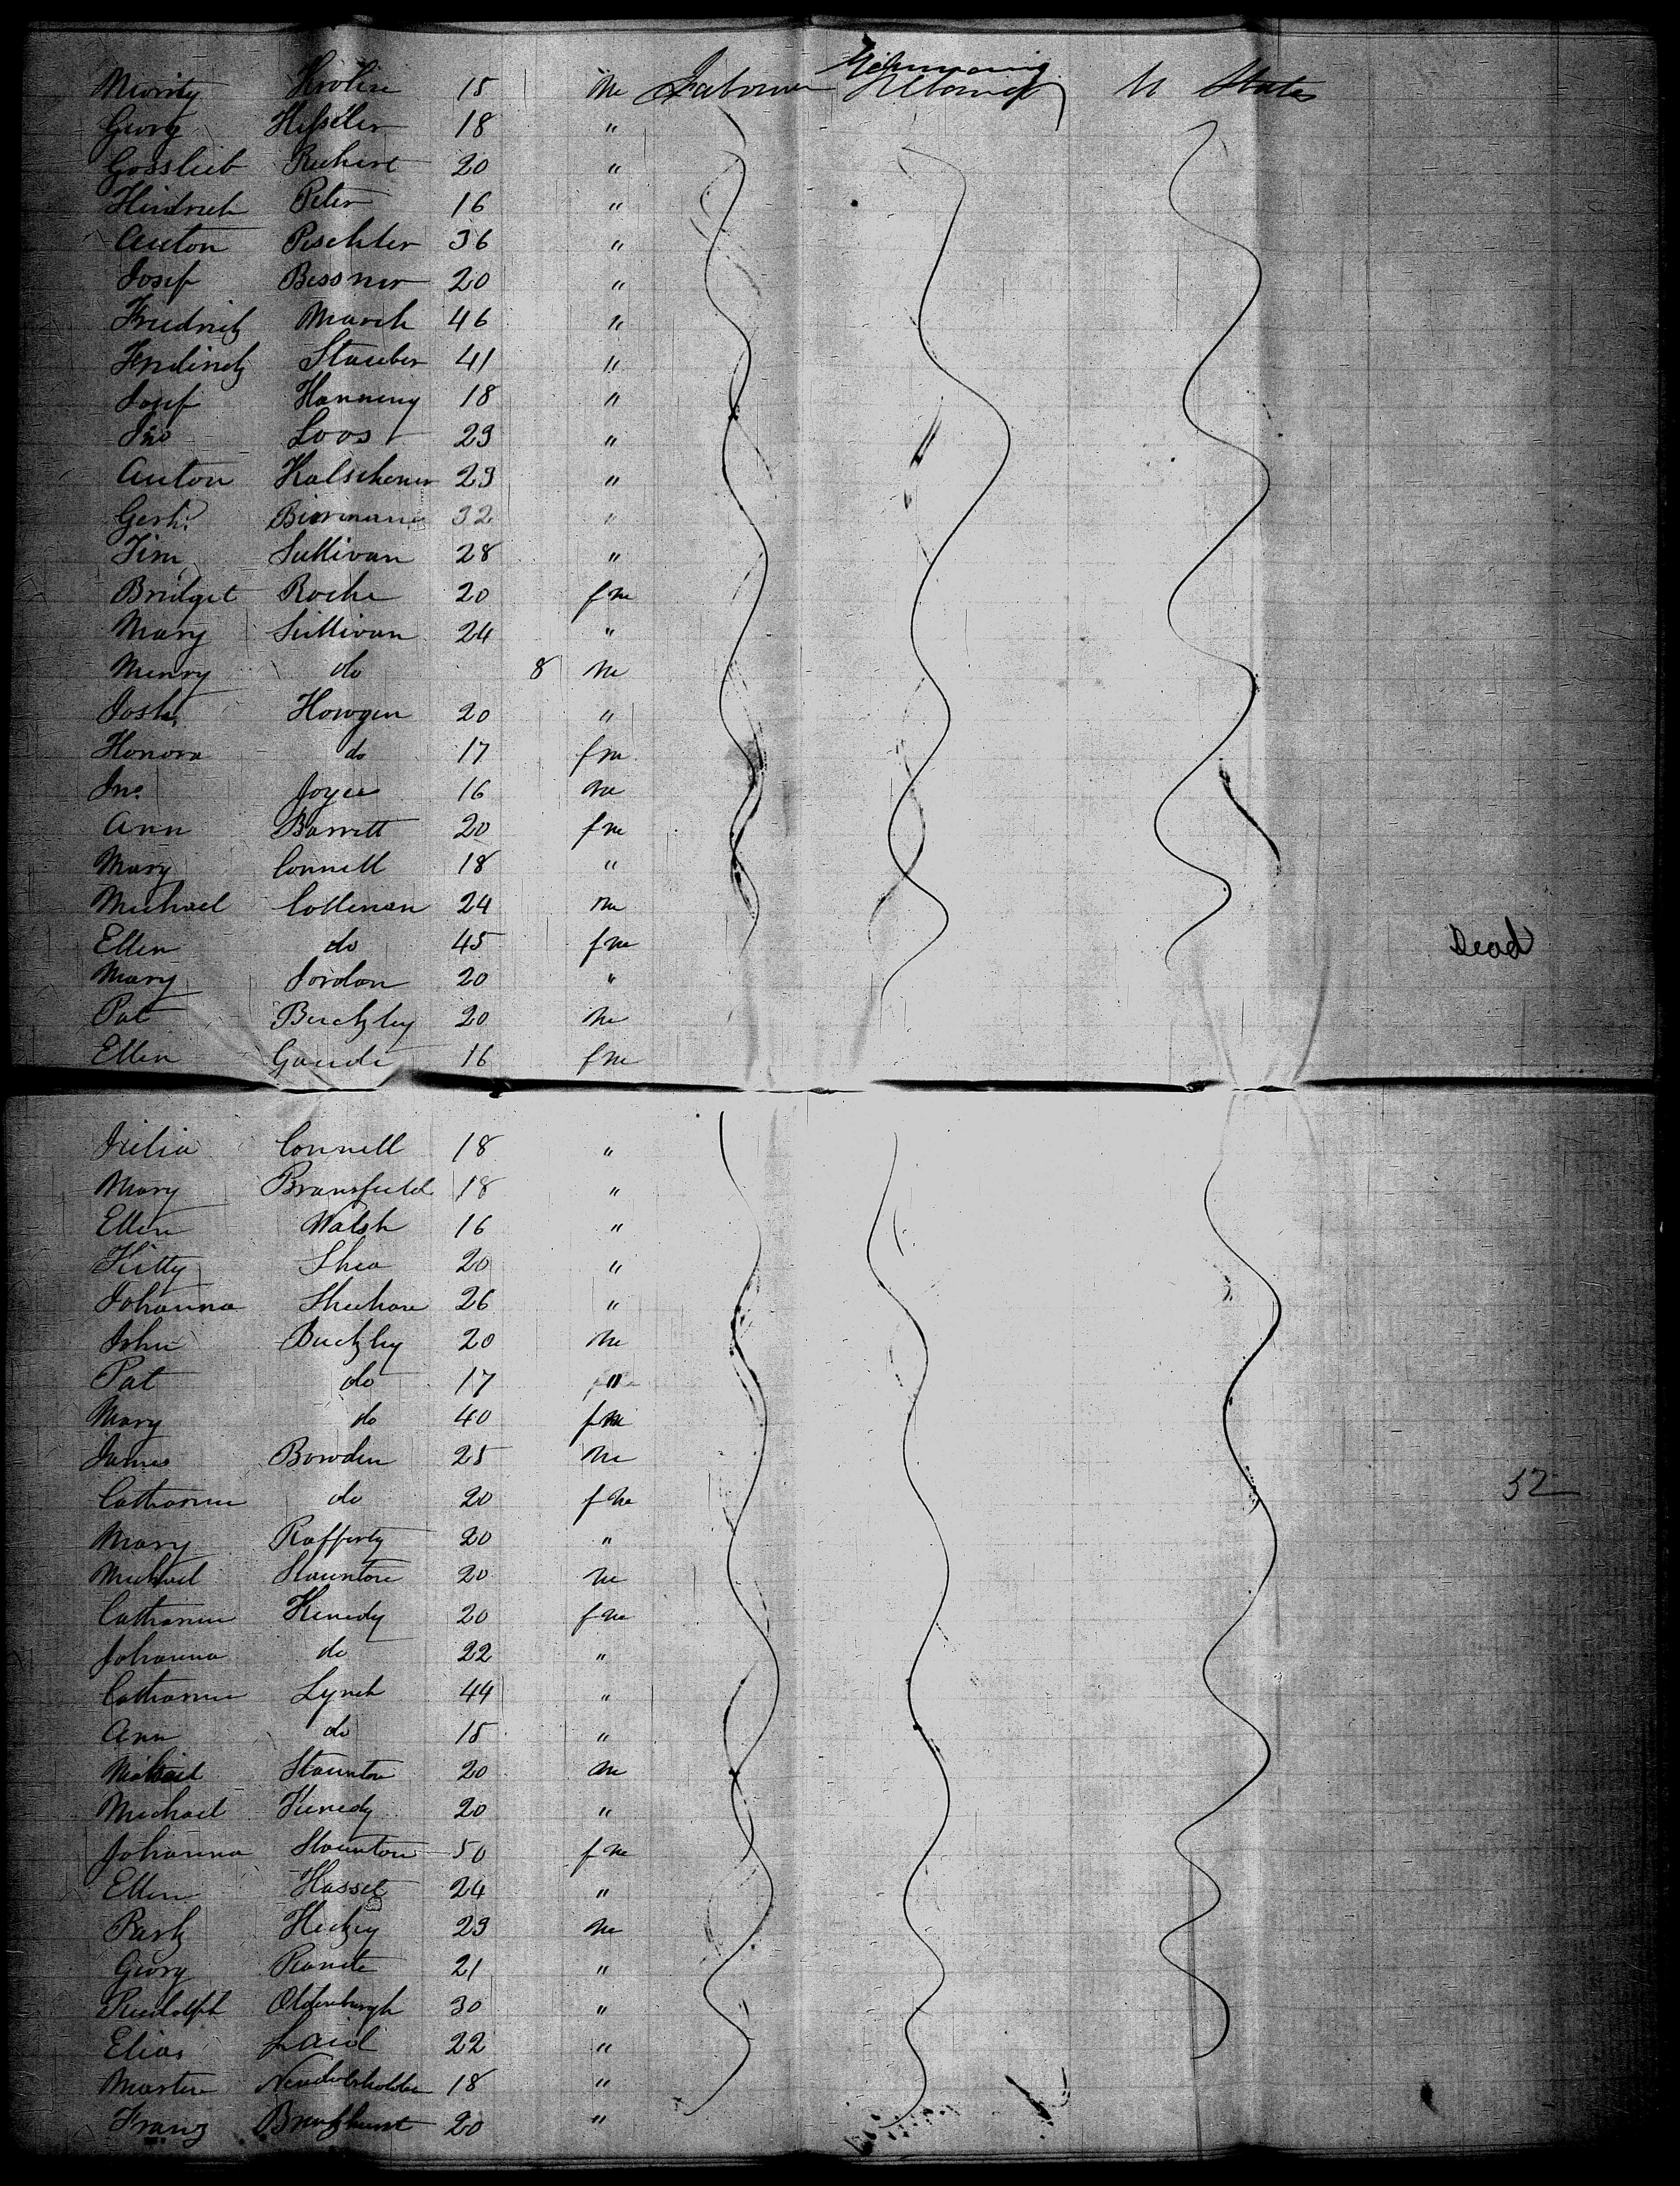 Moritz Krolire 15 m Labourer Germaning U States
Georg Hessler 18 "
Gosslieb Reichert 20 "
Heidrich Peter 16 "
Anton Peschler 36 "
Josif Bessner 20 "
Friedrich March 46 "
Stauber 41 "
Josif Hanning 18 "
Jno Loos 29 "
Anton Kalschener 29 "
Gerhd Biermann 32 "
Tim Sullivan 28 "
Bridget Roche 20 fm
Mary Sullivan 24 "
Menry do 8 m
Josh. Howgen 20 "
Honora do 17 fm
Jno. Joyce 16 m
Ann Barrett 20 fm
Mary Connell 18 "
Michael Collinan 24 m
Ellen do 45 fm Dead
Mary Jordon 20 "
Pat Buckley 20 m
Ellen Gaude 16 fm
Julia Connell 18 "
Mary Bransfield 18 "
Ellen Walsh 16 "
Kitty Shea 20 "
Johanna Sheehan 26 "
John Buckley 20 m
Pat do 17 "
Mary do 40 fm
James Bowden 25 m
Catharine do 20 fm 52
Mary Rafferty 20 "
Michael Staunton 20 m
Catharine Kenedy 20 fm
Johanna do 22 "
Catharine Lynch 44 "
Ann do 15 "
Michael Staunton 20 m
Michael Kenedy 20 "
Johanna Staunton 50 fm
Ellen Hasset 24 "
Park Hickey 29 m
Georg 21 "
Rudolph Oldenburgh 30 "
Elias Laid 22 "
Martin 18 "
Franz Brockhurst 20 "